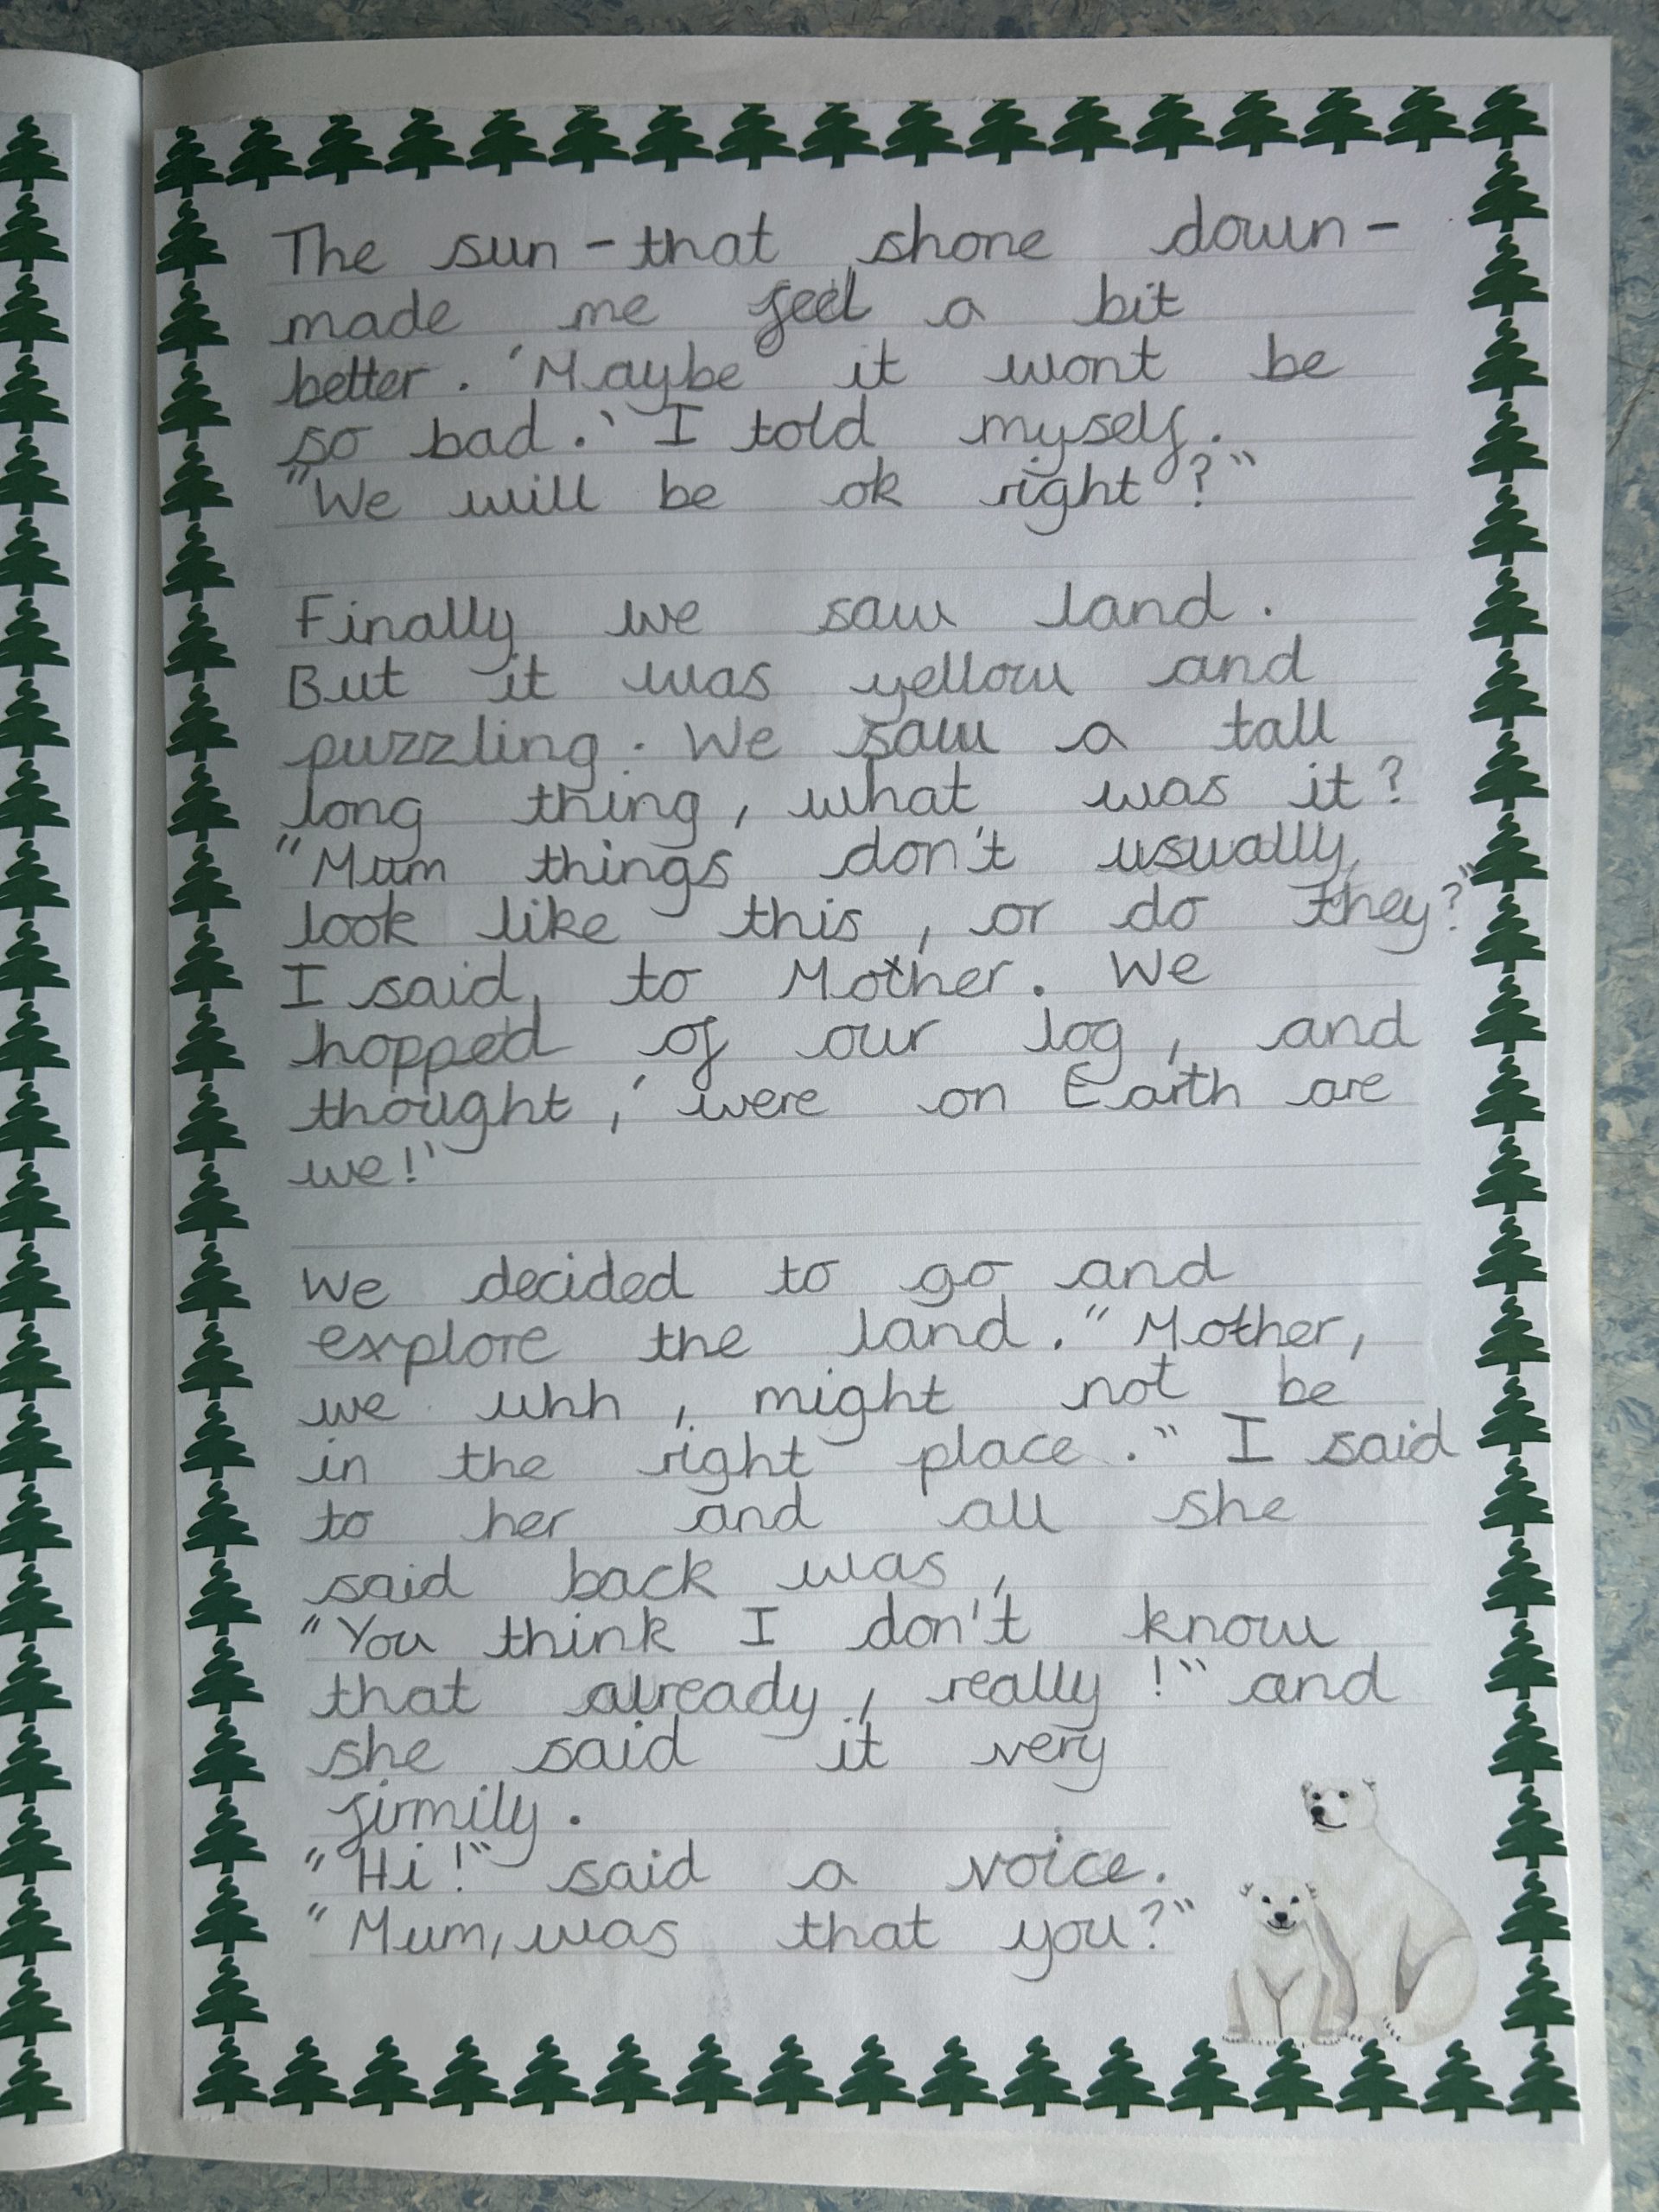 The sun - that shone down -
made me feel a bit
better. 'Maybe it wont be
so bad.' I told myself.
"We will be ok right?"
Finally we saw land.
But it was yellow and
puzzling. We saw a tall
long thing, what was it?
"Mum things don't usually,
look like this, or do they?"
I said, to Mother. We
hopped of our log, and
thought, 'were on Earth are
we!'
We decided to go and
explore the land. "Mother,
we uhh, might not be
in the right place." I said
to her and all she
said back was,
"You think I don't know
that already, really!" and
she said it very
firmily.
"Hi!" said a voice.
"Mum, was that you?"